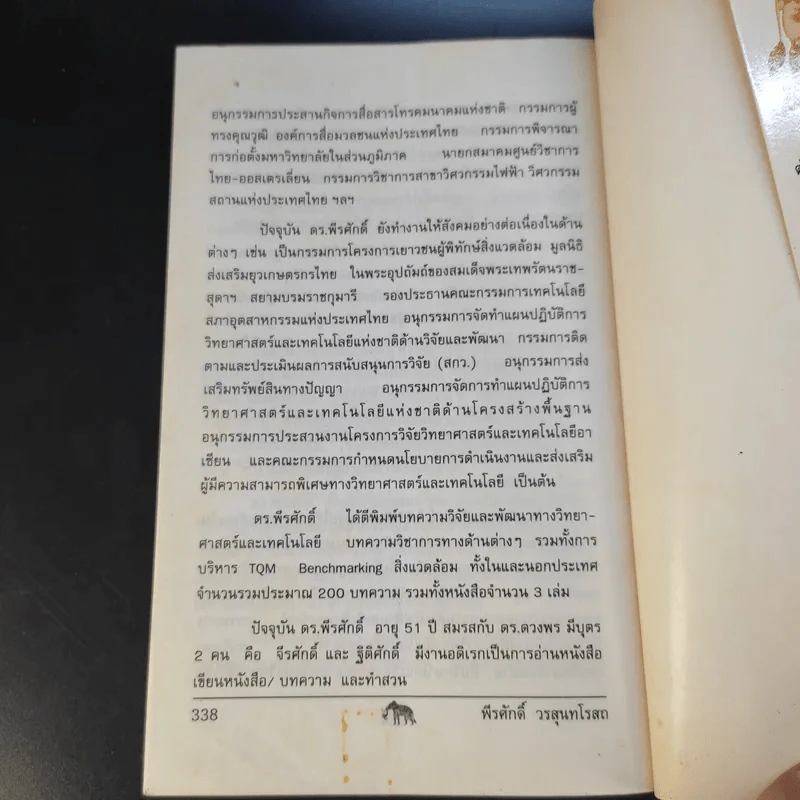 อนุกรรมการประสานกิจการสื่อสารโทรคมนาคมแห่งชาติ กรรมการผู้
ทรงคุณวุฒิ องค์การสื่อมวลชนแห่งประเทศไทย กรรมการพิจารณา
การก่อตั้งมหาวิทยาลัยในส่วนภูมิภาค นายกสมาคมศูนย์วิชาการ
ไทย-ออสเตรเลี่ยน กรรมการวิชาการสาขาวิศวกรรมไฟฟ้า วิศวกรรม
สถานแห่งประเทศไทย ฯลฯ
ปัจจุบัน ดร.พีรศักดิ์ ยังทำงานให้สังคมอย่างต่อเนื่องในด้าน
ต่างๆ เช่น เป็นกรรมการโครงการเยาวชนผู้พิทักษ์สิ่งแวดล้อม มูลนิธิ
ส่งเสริมยุวเกษตรกรไทย ในพระอุปถัมภ์ของสมเด็จพระเทพรัตนราช-
สุดาฯ สยามบรมราชกุมารี รองประธานคณะกรรมการเทคโนโลยี
สภาอุตสาหกรรมแห่งประเทศไทย อนุกรรมการจัดทำแผนปฏิบัติการ
วิทยาศาสตร์และเทคโนโลยีแห่งชาติด้านวิจัยและพัฒนา กรรมการติด
ตามและประเมินผลการสนับสนุนการวิจัย (สกว.) อนุกรรมการส่ง
เสริมทรัพย์สินทางปัญญา อนุกรรมการจัดการทำแผนปฏิบัติการ
วิทยาศาสตร์และเทคโนโลยีแห่งชาติด้านโครงสร้างพื้นฐาน
อนุกรรมการประสวนงานโครงการวิจัยวิทยาศาสตร์และเทคโนโลยีอา
เซียน และคณะกรรมการกำหนดนโยบายการดำเนินงานและส่งเสริม
ผู้มีความสามารถพิเศษทางวิทยาศาสตร์และเทคโนโลยี เป็นต้น
ดร.พีรศักดิ์ ได้ตีพิมพ์บทความวิจัยและพัฒนาทางวิทยา-
ศาสตร์และเทคโนโลยี บทความวิชาการทางด้านต่างๆ รวมทั้งการ
บริหาร TQM Benchmarking สิ่งแวดล้อม ทั้งในและนอกประเทศ
จำนวนรวมประมาณ 200 บทความ รวมทั้งหนังสือจำนวน 3 เล่ม
ปัจจุบัน ดร.พีรศักดิ์ อายุ 51 ปี สมรสกับ ดร.ดวงพร มีบุตร
2 คน คือ จีรศักดิ์ และ ฐิติศักดิ์ มีงานอดิเรกเป็นการอ่านหนังสือ
เขียนหนังสือ/ บทความ และทำสวน
338 พีรศักดิ์ วรสุนทโรสถ